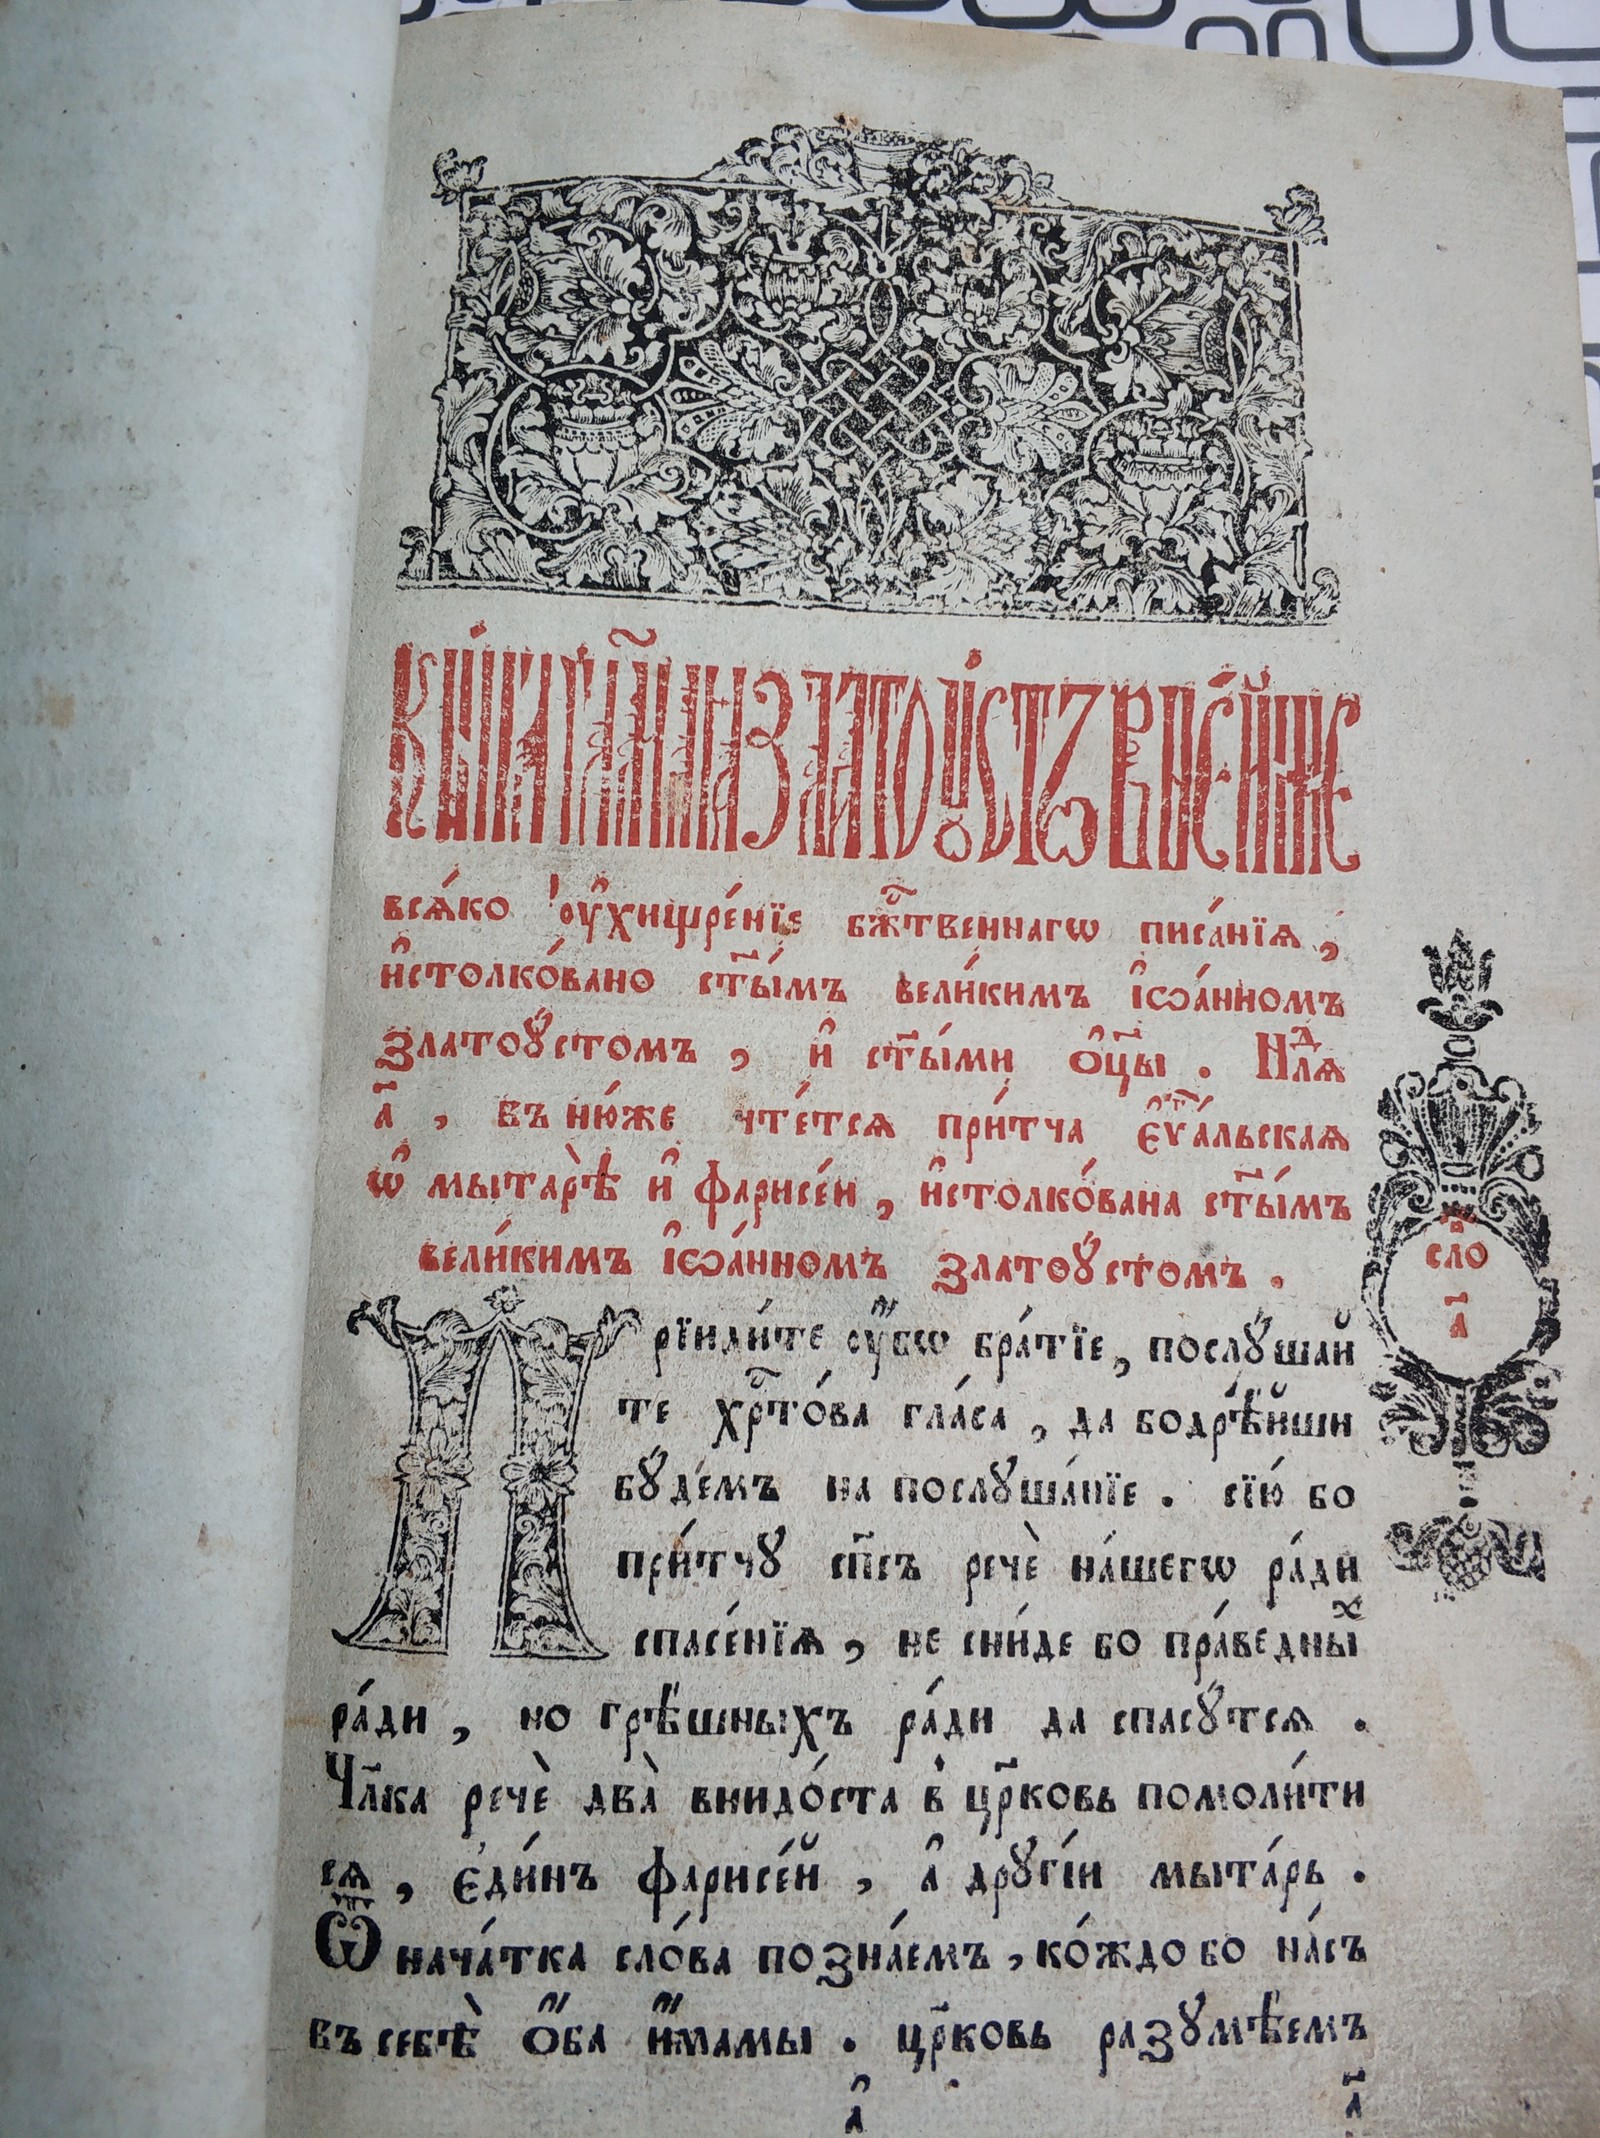 Кни́га гл҃емая златоꙋ́стъ, в не́йже
всѧ́ко ᲂу҆хищре́нїе бж҇твеннагѡ писа́нїѧ,
и҆столко́вано ст҃ы́мъ вели́кимъ і҆ѡа́нномъ
златоꙋ́стомъ, и҆ ст҃ы́ми ѻ҆ц҃ы. Нⷣлѧ
а҃, въ ню́же чте́тсѧ при́тча є҆ѵⷢ҇а́льскаѧ
ѡ҆ мытарѣ̀ и҆ фарисе́и, и҆столко́вана ст҃ы́мъ
вели́кимъ і҆ѡа́нномъ златоꙋ́стомъ.
сло
а҃
Прїиди́те ᲂу҆́бѡ бра́тїе, послꙋ́шай
те хрⷭ҇то́ва гла́са, да бодрѣ́йши
бꙋ́демъ на послꙋша́нїе. сїю́ бо
при́тчꙋ сп҃съ речѐ на́шегѡ ра́ди
спасе́нїѧ, не сни́де бо пра́ведныⷯ
ра́ди, но грѣ́шныхъ ра́ди да спасꙋ́тсѧ.
Чл҃ка речѐ два̀ внидо́ста в̾ цр҃ковь помоли́ти
сѧ, є҆ди́нъ фарисе́й, а҆ дрꙋгі́и мыта́рь.
Ѿ нача́тка сло́ва позна́емъ, ко́ждо бо на́съ
въ себѣ̀ ѻ҆́ба и҆́мамы. цр҃ковь разꙋмѣ́емъ
а҆ а҃